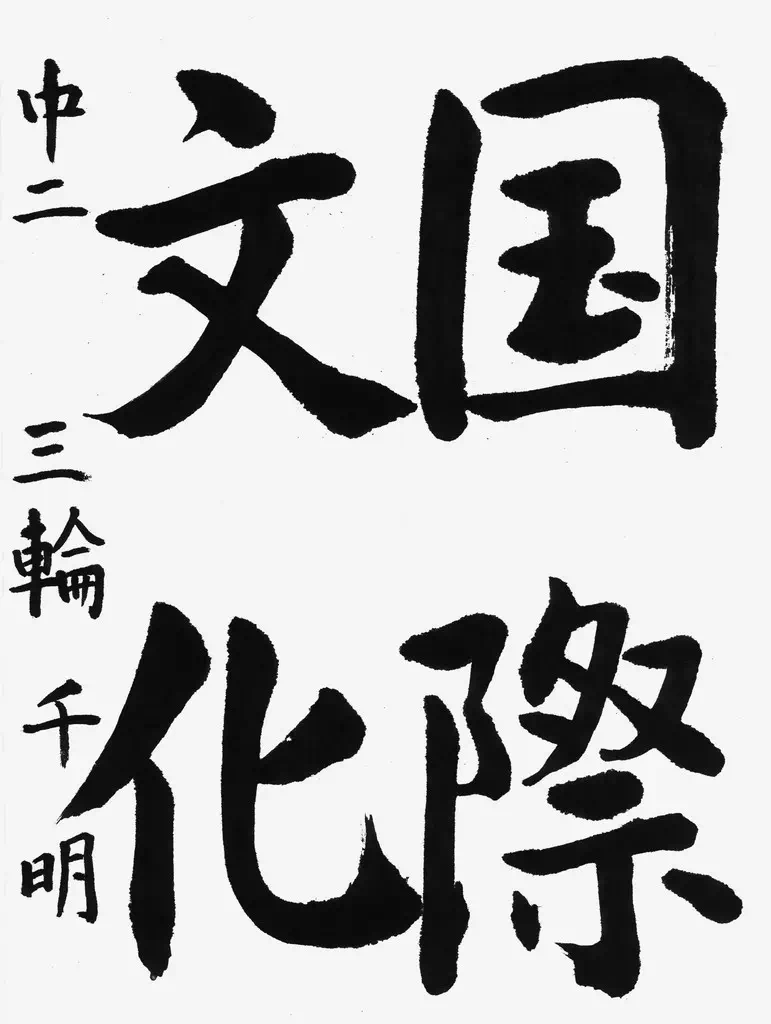 国際
文化
中二 三輪千明